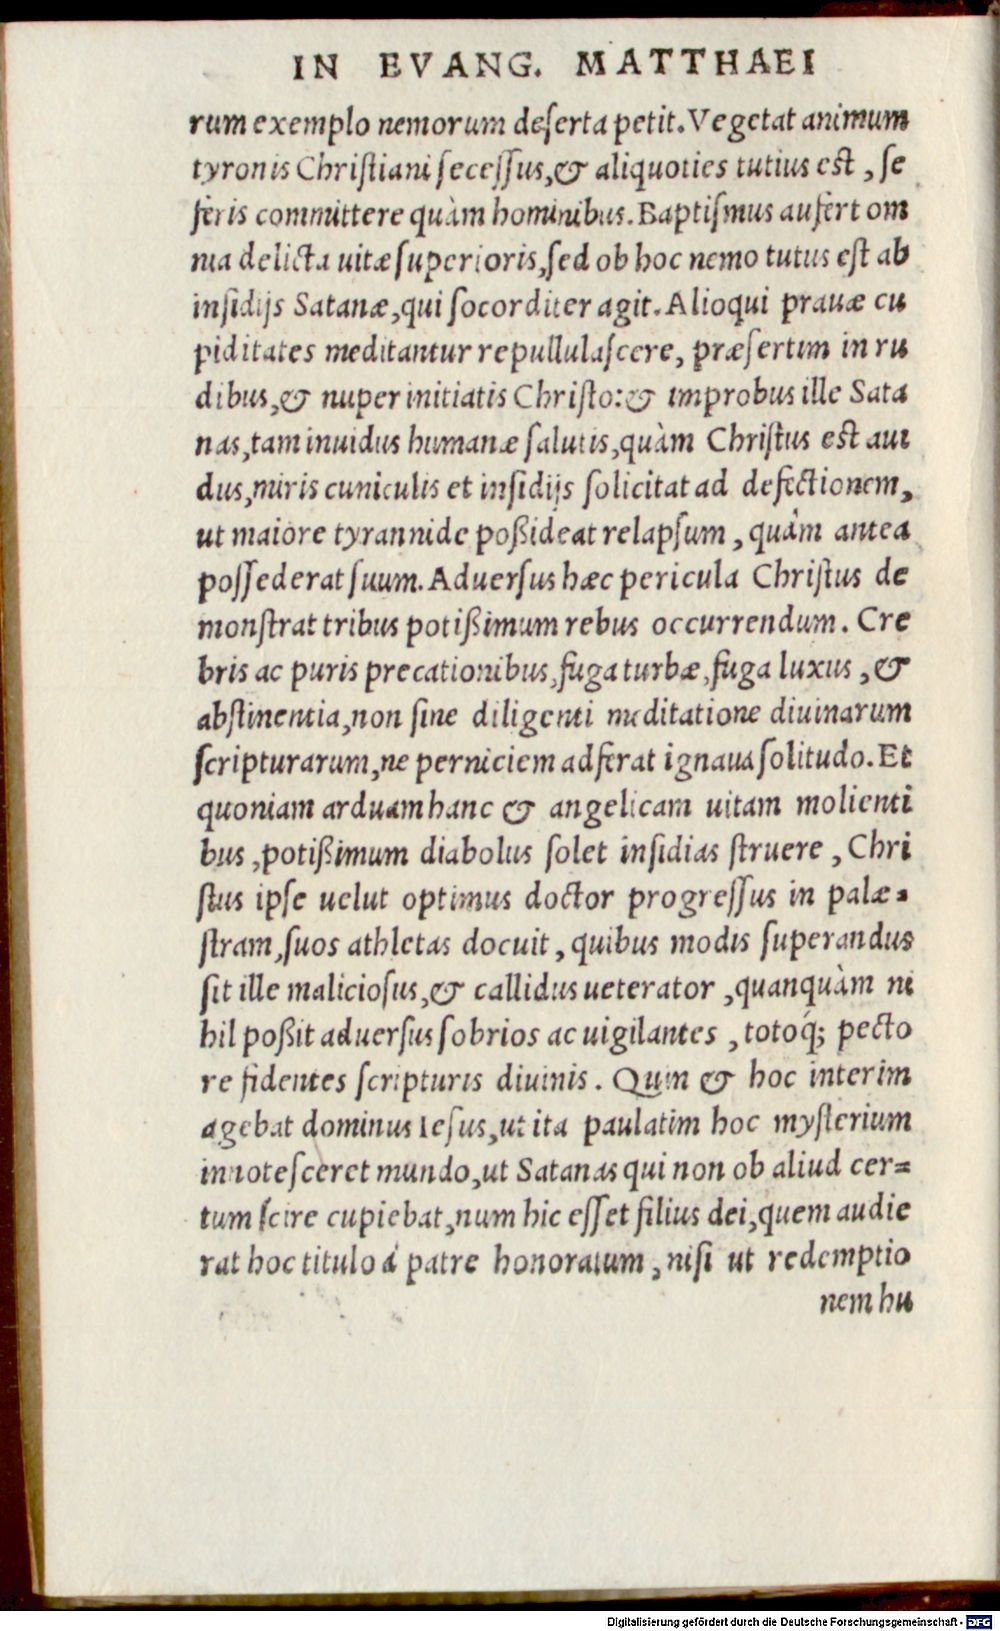 IN EVANG. MATTHAEI
rum exemplo nemorum deſerta petit. Vegetat animum
tyronis Chriſtiani ſeceſſus, & aliquoties tutius est, ſe
feris committere quàm hominibus. Baptiſmus aufert om
nia delicta uitæ ſuperioris, ſed ob hoc nemo tutus eſt ab
inſidijs Satanæ, qui ſocorditer agit. Alioqui prauæ cu
piditates meditantur repullulaſcere, præſertim in ru
dibus, & nuper initiatis Chriſto: & improbus ille Sata
nas, tam inuidus humanæ ſalutis, quàm Chriſtus est aui
dus, miris cuniculis et inſidijs ſolicitat ad defectionem,
ut maiore tyrannide poßideat relapſum, quàm antea
poſſederat ſuum. Aduerſus hæc pericula Chriſtus de
monſtrat tribus potißimum rebus occurrendum. Cre
bris ac puris precationibus, fuga turbæ, fuga luxus, &
abſtinentia, non ſine diligenti meditatione diuinarum
ſcripturarum, ne perniciem adferat ignaua ſolitudo. Et
quoniam arduam hanc & angelicam uitam molienti
bus, potißimum diabolus ſolet inſidias ſtruere, Chri
ſtus ipſe uelut optimus doctor progreſſus in palæ-
ſtram, ſuos athletas docuit, quibus modis ſuperandus
ſit ille malicioſus, & callidus ueterator, quanquàm ni
hil poßit aduerſus ſobrios ac uigilantes, totoq́; pecto
re fidentes ſcripturis diuinis. Qum & hoc interim
agebat dominus Ieſus, ut ita paulatim hoc myſterium
innoteſceret mundo, ut Satanas qui non ob aliud cer=
tum ſcire cupiebat, num hic eſſet filius dei, quem audie
rat hoc titulo á patre honoratum, niſi ut redemptio
nem hu
Digitalisierung gefördert durch die Deutsche Forschungsgemeinschaft - DFG